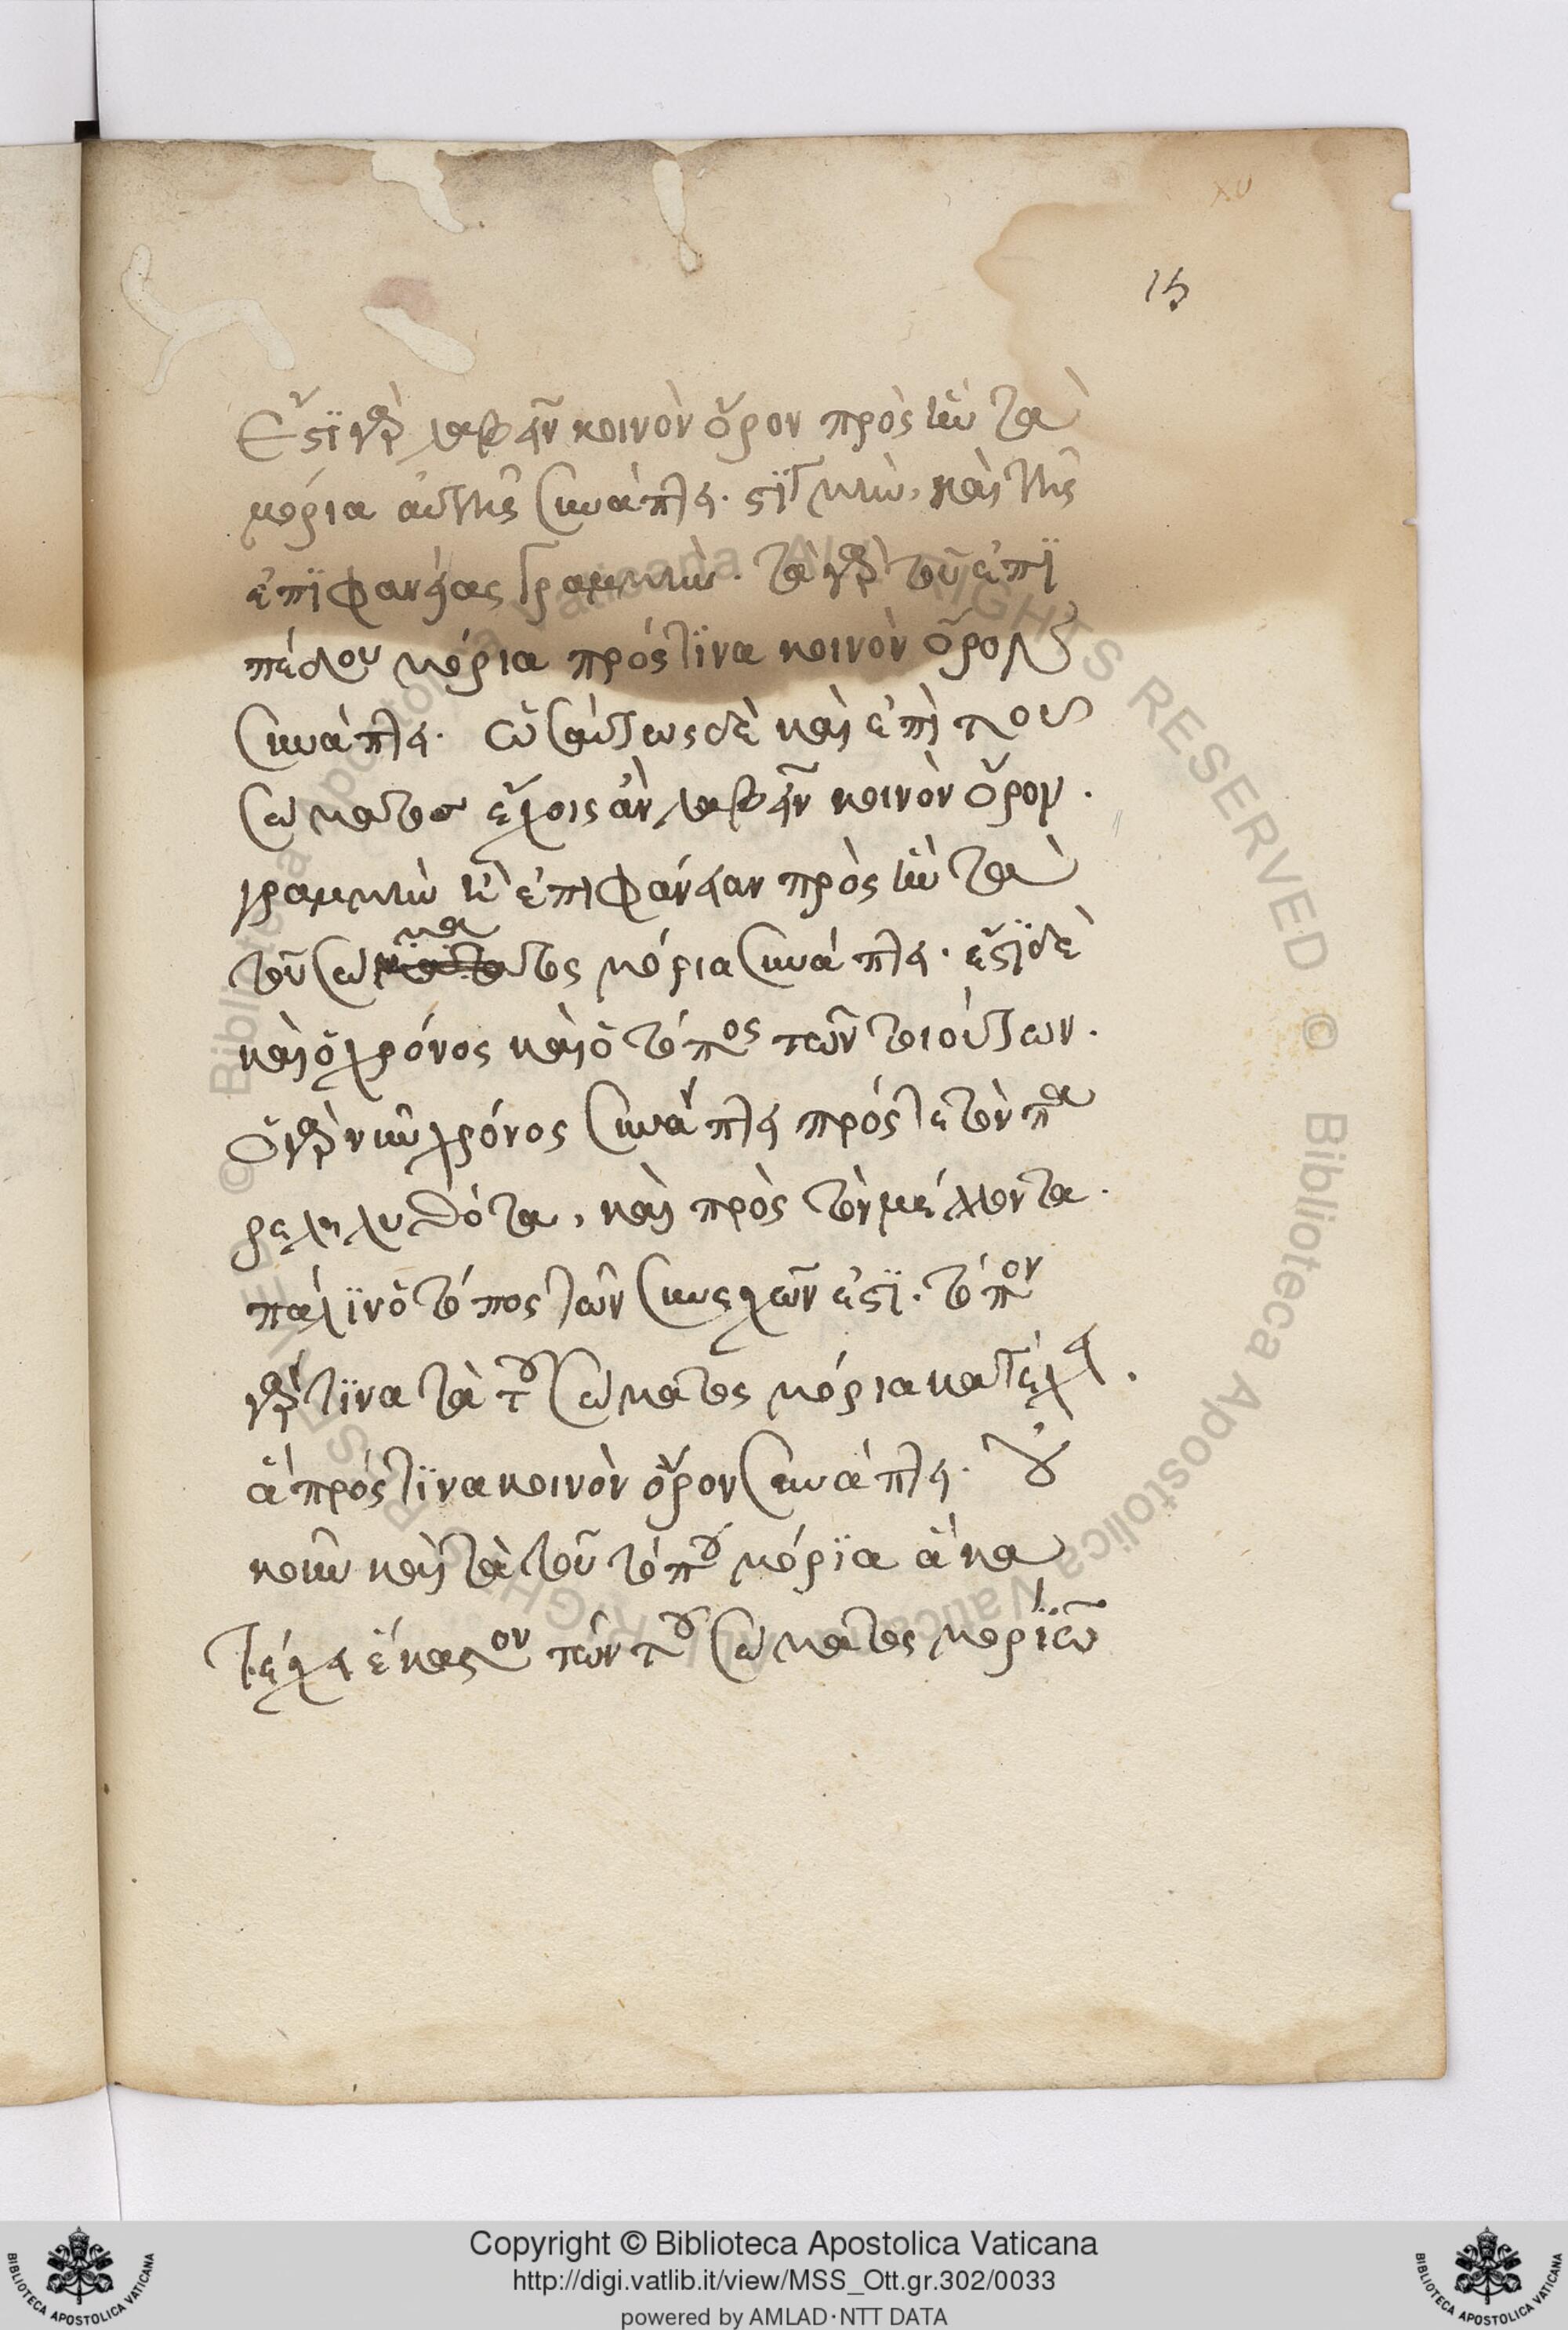 15
Ἔστι γὰρ λαβεῖν κοινὸν ὅρον πρὸς ἣν τὰ
μόρια αὐτῆς συνάπτει· στιγμὴν, καὶ τῆς
ἐπιφανείας γραμμὴν· τὰ γὰρ τοῦ ἐπι
πέδου μόρια πρός τινα κοινὸν ὅρον
συνάπτει· ὡσαύτως δὲ καὶ ἐπὶ του
σώματος ἔχοις ἂν λαβεῖν κοινὸν ὅρον·
γραμμὴν ἢ ἐπιφάνειαν πρὸς ἣν τὰ
τοῦ σώματος μόρια συνάπτει· ἔστι δὲ
καὶ ὁ χρόνος καὶ ὁ τόπος τῶν τοιούτων·
ὁ γὰρ νῦν χρόνος συνάπτει πρός τε τὸν πα
ρεληλυθότα, καὶ πρὸς τὸν μέλλοντα·
πάλιν ὁ τόπος τῶν συνεχῶν ἐστι· τόπον
γάρ τινα τὰ τοῦ σώματος μόρια κατέχει·
ἃ πρός τινα κοινὸν ὅρον συνάπτει· οὐ
κοῦν καὶ τὰ τοῦ τόπου μόρια ἃ κα
τέχει ἕκαστον τῶν τοῦ σώματος μορίων
Copyright © Biblioteca Apostolica Vaticana
http://digi.vatlib.it/view/MSS_Ott.gr.302/0033
powered by AMLAD·NTT DATA